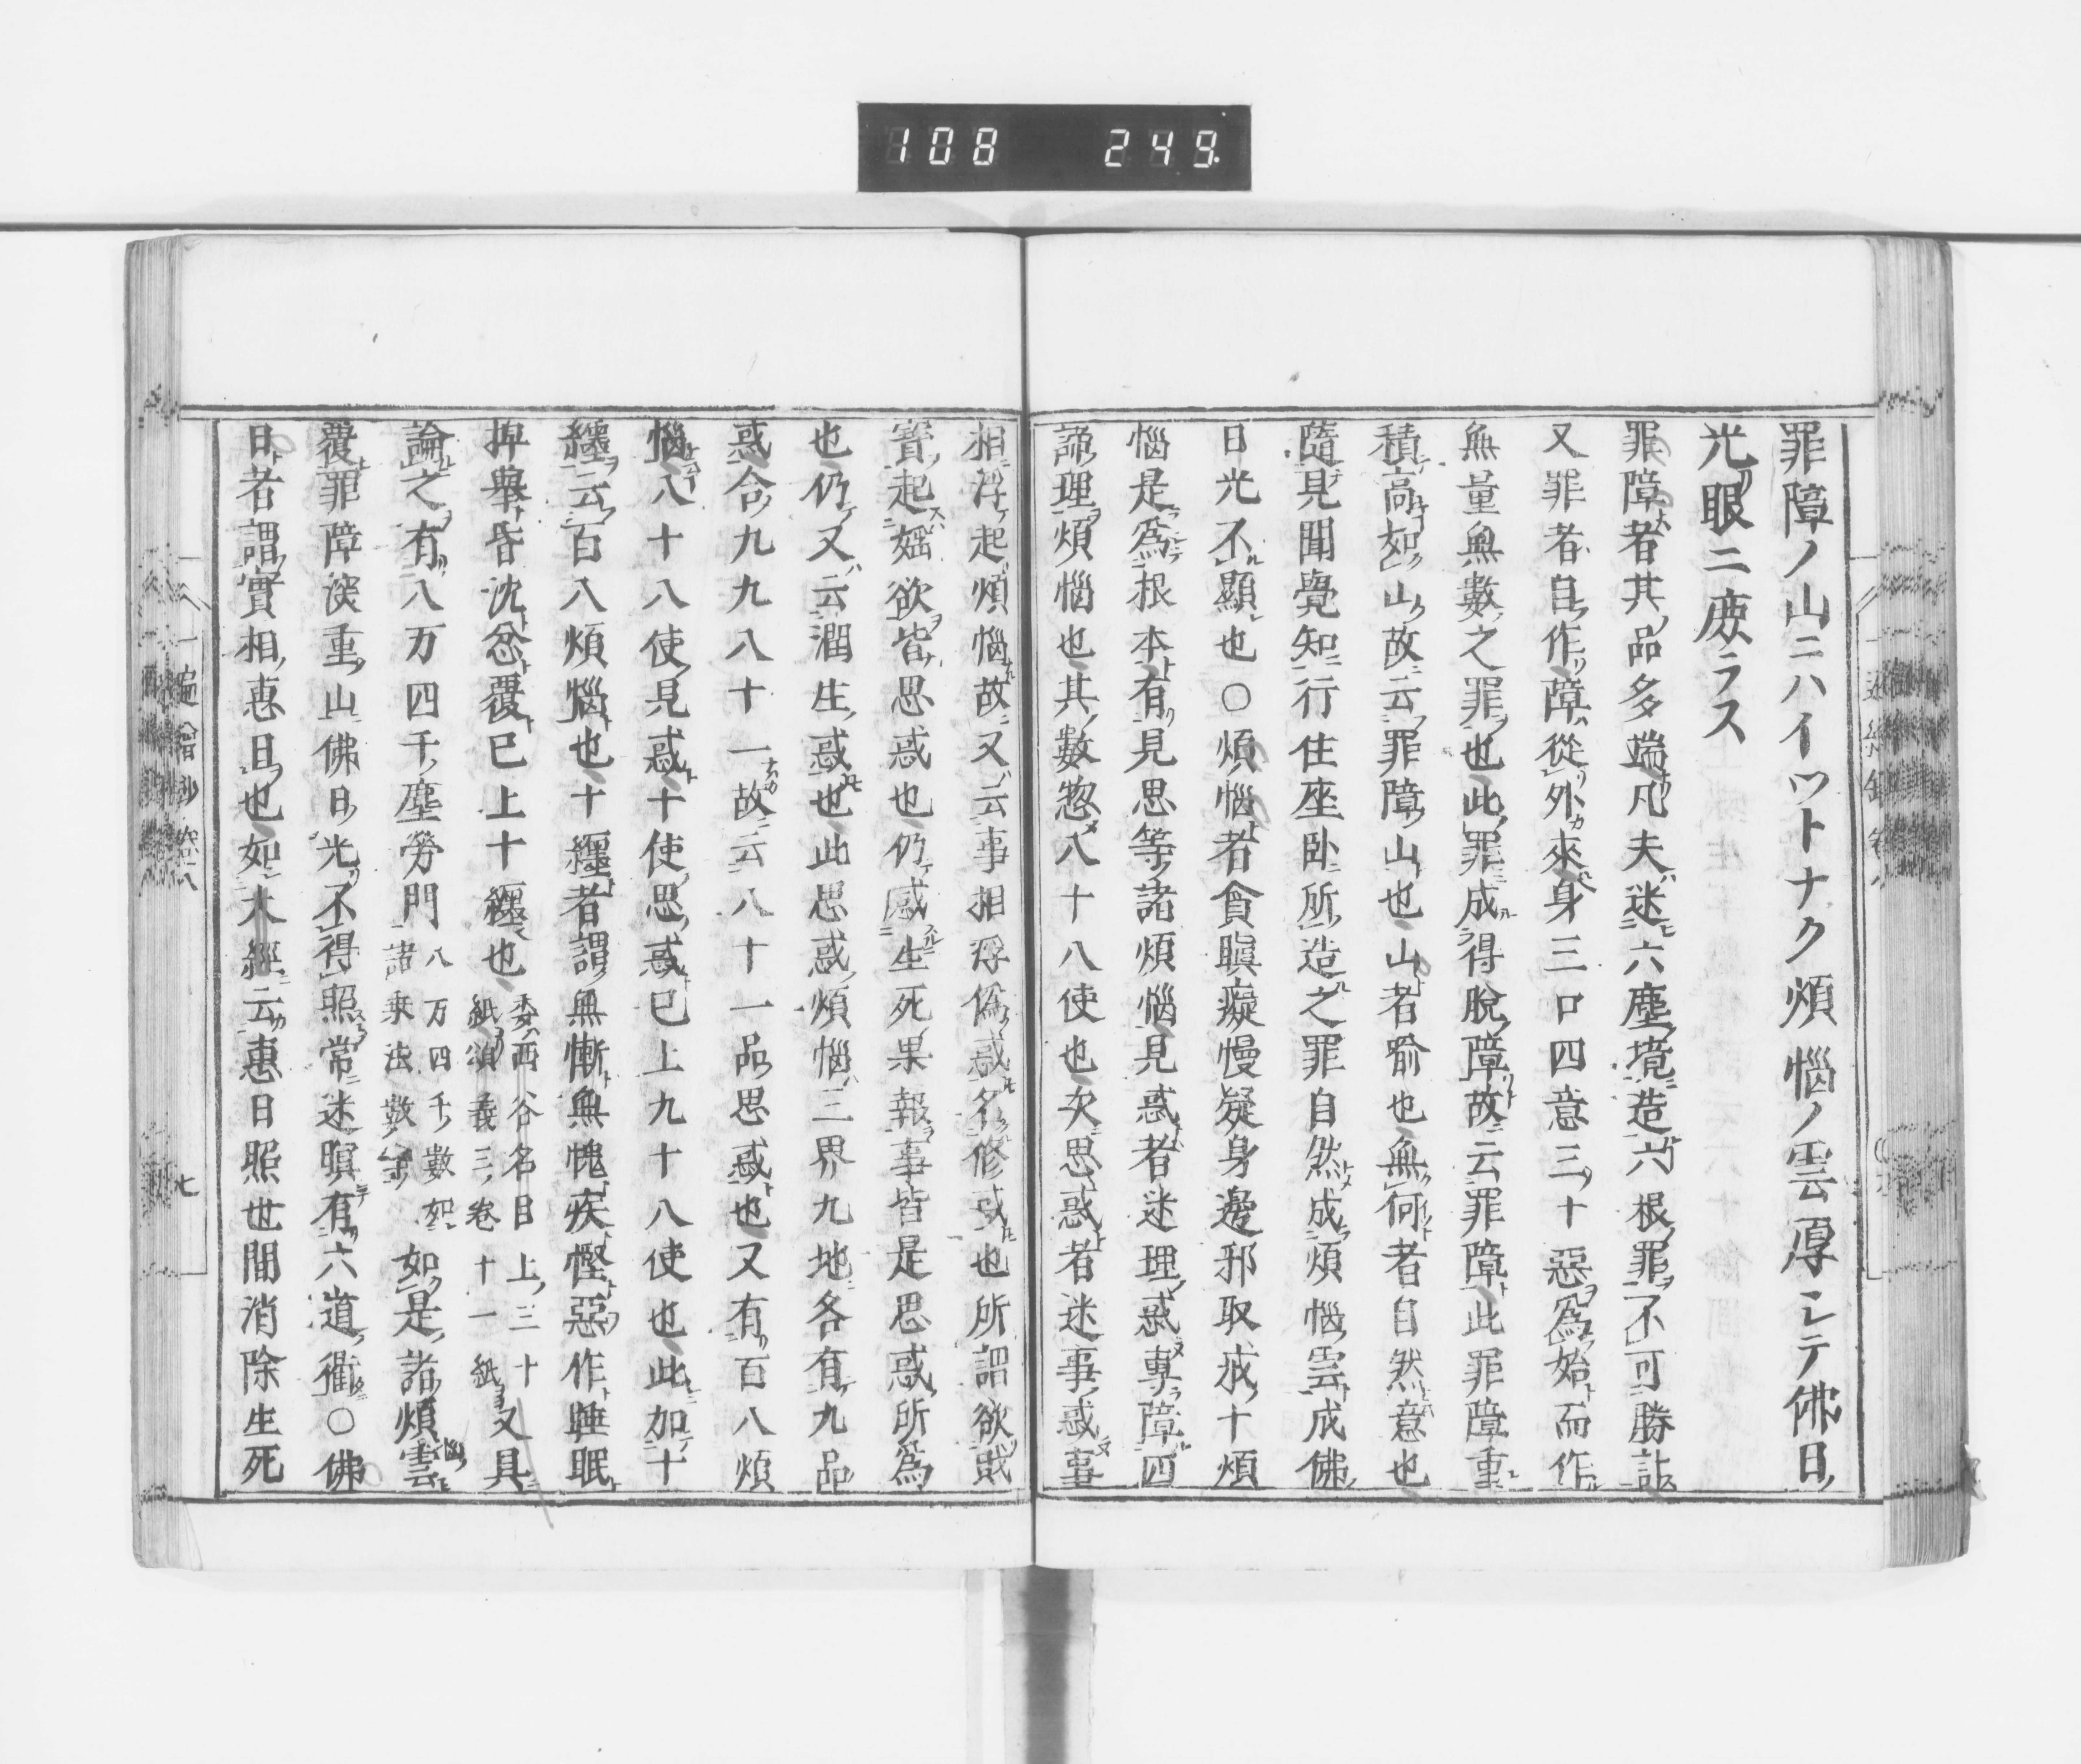 108 249
罪障ノ山ニハイツトナク煩惱ノ雲厚シテ佛日ノ
光眼ニ遮ラス
罪障者其品多端凡夫迷六塵境造六根罪不可勝計
又罪者自作障從外來身三口四意三十惡為始而作
無量無數之罪也此罪成得脫障故云罪障此罪障重
積高如山故云罪障山也山者喻也無何者自然意也
隨見聞覺知行住座臥所造之罪自然成煩惱雲成佛
日光不顯也〇煩惱者貪瞋癡慢疑身邊邪取戒十煩
惱是為根本有見思等諸煩惱見惑者迷理惑專障四
諦理煩惱也其數惣八十八使也次思惑者迷事惑事
相浮起煩惱故又云事相浮偽惑名修惑也所謂欲財
寶起婬欲皆思惑也仍感生死果報事皆是思惑所為
也仍又云潤生惑也此思惑煩惱三界九地各有九品
惑合九九八十一故云八十一品思惑也又有百八煩
惱八十八使見惑十使思惑已上九十八使也此加十
纒云百八煩惱也十纒者謂無慚無愧疾慳惡作睡眠
掉舉昏沈忿覆已上十纒也委西谷名目上三十紙頌義三卷十一紙又具
論之有八万四千塵勞門八万四千數如諸乘法數如是諸煩惱雲
覆罪障深重山佛日光不得照常迷暝有六道衢〇佛
日者謂實相惠日也如大經云惠日照世間消除生死
一遍會鈔 卷八 七